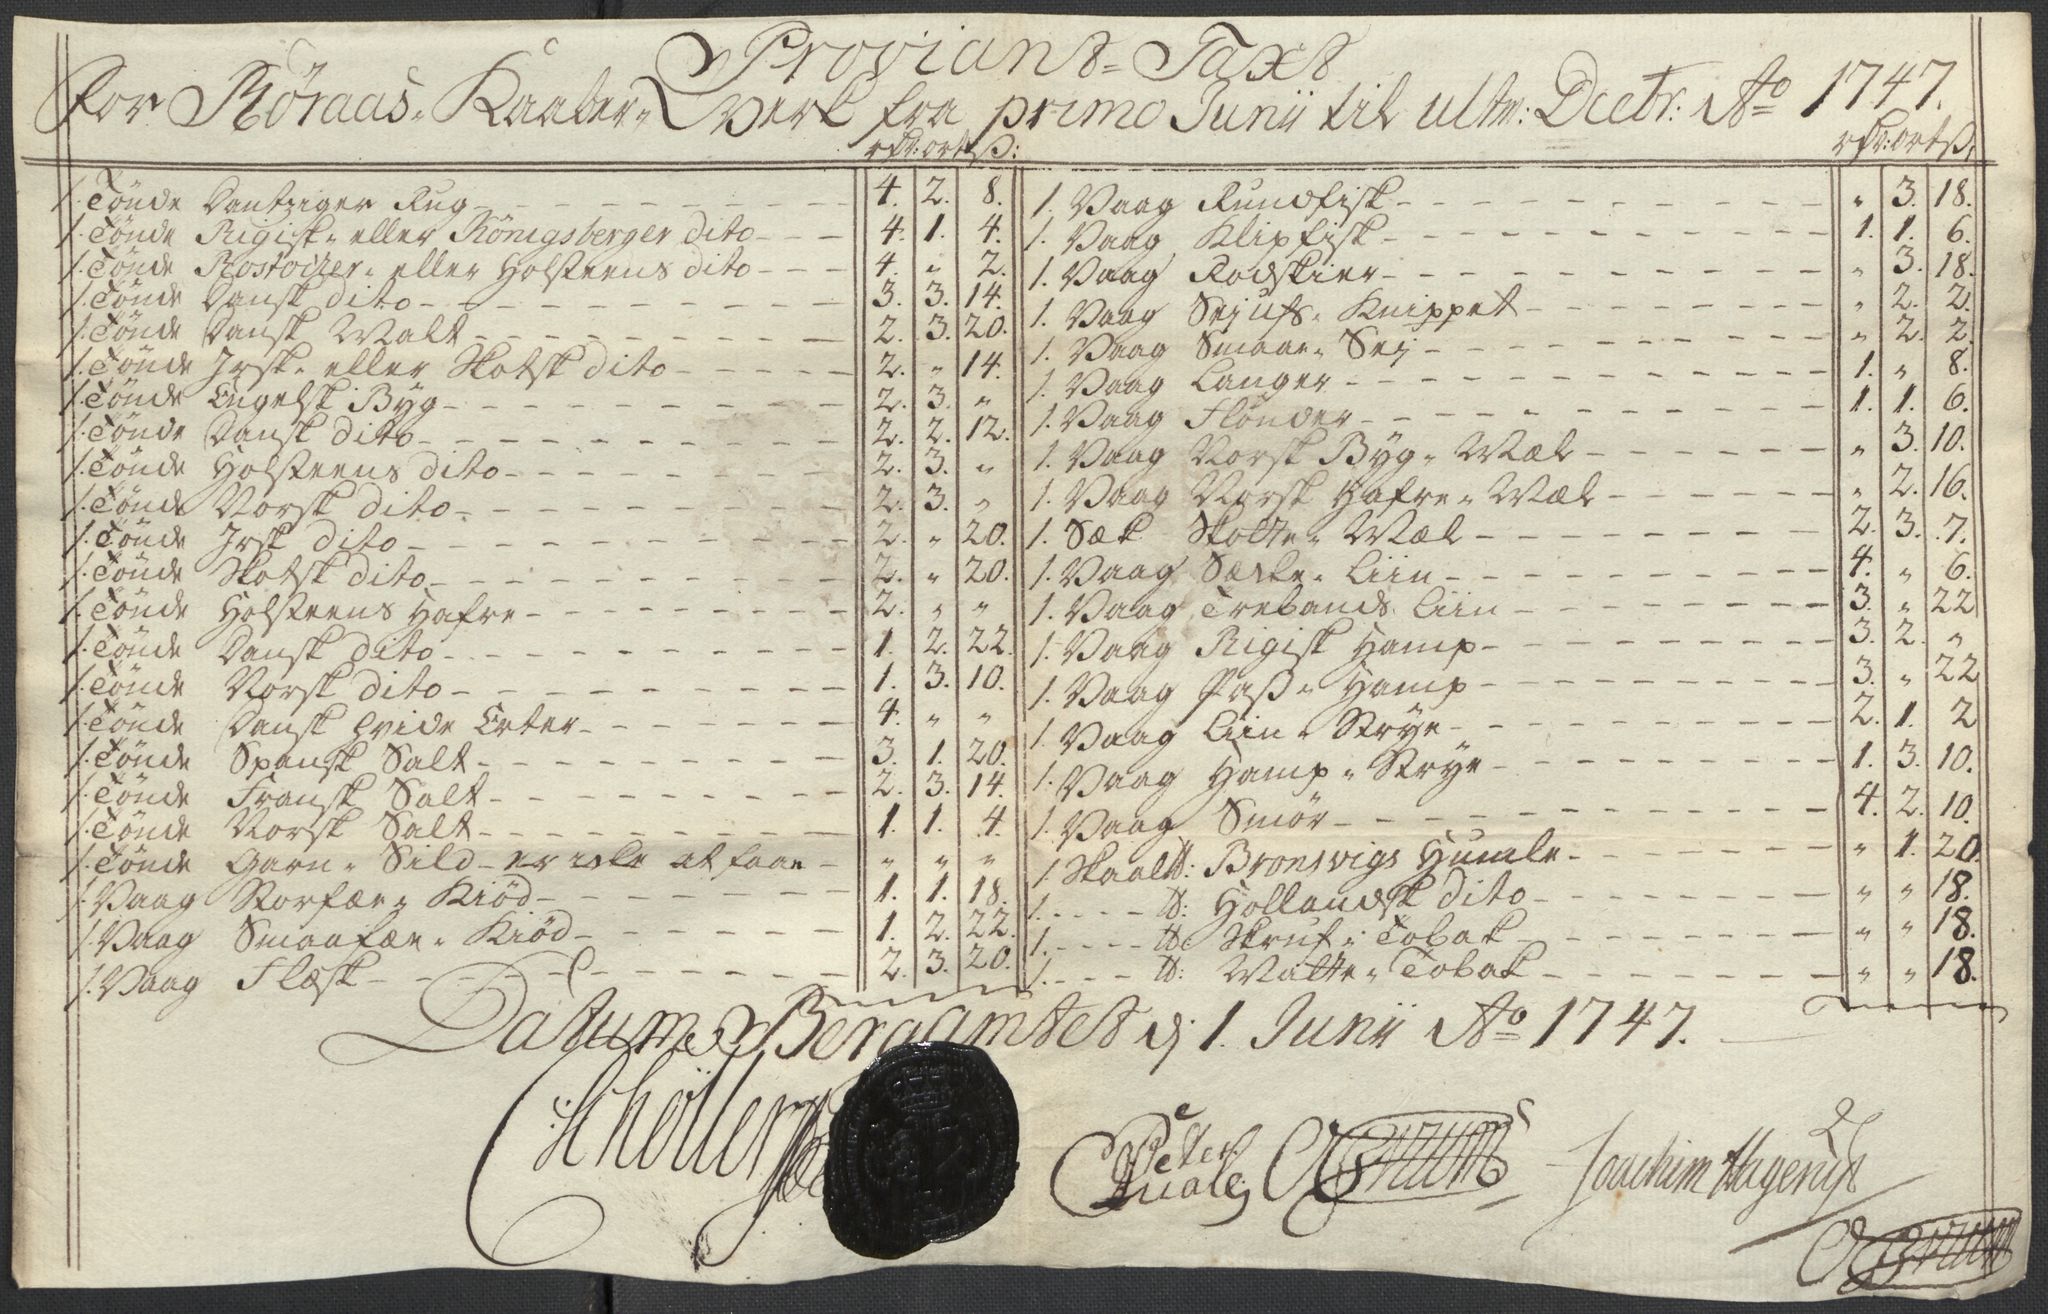 Proviant-Taxt
For Röraas-Kaaber-Werk fra primo Junii til ultm: Decbr: Ao 1747.
rdr: ort ß:
1. Tönde Dantziger Rug 4. 2. 8.
1. Tönde Rigisk- eller Königsberger dito 4. 1. 4.
1. Tönde Rostoker- eller Holsteens dito 4. " 2.
1. Tönde Dansk dito 3. 3. 14.
1. Tönde Dansk Malt 2. 3. 20.
1. Tönde Irsk- eller Skotsk dito 2. " 14.
1. Tönde Engelsk Byg 2. 3. "
1. Tönde Dansk dito 2. 2. 12.
1. Tönde Holsteens dito 2. 3. "
1. Tönde Norsk dito 2. 3. "
1. Tönde Irsk dito 2. " 20.
1. Tönde Skotsk dito 2. " 20.
1. Tönde Holsteens Hafre 2. " "
1. Tönde Dansk dito 1. 2. 22.
1. Tönde Norsk dito 1. 3. 10.
1. Tönde Dansk hvide Erter 4. " "
1. Tönde Spansk Salt 3. 1. 20.
1. Tönde Fransk Salt 2. 3. 14.
1. Tönde Norsk Salt 1. 1. 4.
1. Tönde Garn-Sild er icke at faae " " "
1. Vaag Storfæe-Kiöd 1. 1. 18.
1. Vaag Smaafæe-Kiöd 1. 2. 22.
1. Vaag Flæsk 2. 3. 20.
rdr: ort ß:
1. Vaag Rundfisk " 3. 18.
1. Vaag Klipfisk 1. 1. 6.
1. Vaag Rodskier " 3. 18.
1. Vaag Sejufs-Knippet " 2. 2.
1. Vaag Smaae-Sej " 2. 2.
1. Vaag Langer 1. " 8.
1. Vaag Flönder 1. 1. 6.
1. Vaag Norsk Byg-Mæel " 3. 10.
1. Vaag Norsk Hafre-Mæel " 2. 16.
1. Sæk Skotte-Mæel 2. 3. 7.
1. Vaag Sæcke-Liin 4. " 6.
1. Vaag Trebands Liin 3. " 22
1. Vaag Rigisk Hamp 3. 2. "
1. Vaag Paß-Hamp 3. " 22
1. Vaag Liin-Strye 2. 1. 2
1. Vaag Hamp-Strye 1. 3. 10.
1. Vaag Smör 4. 2. 10.
1 Skaal ℔: Bronsvigs Humle " 1. 20.
1. ℔: Hollandsk dito " " 18.
1. ℔: Skruf-Tobak " " 18.
1. ℔: Matte-Tobak " " 18.
Datum Bergamtet d: 1. Junii Ao 1747.
Schöller
Peter Quale
Joachim Hagerup